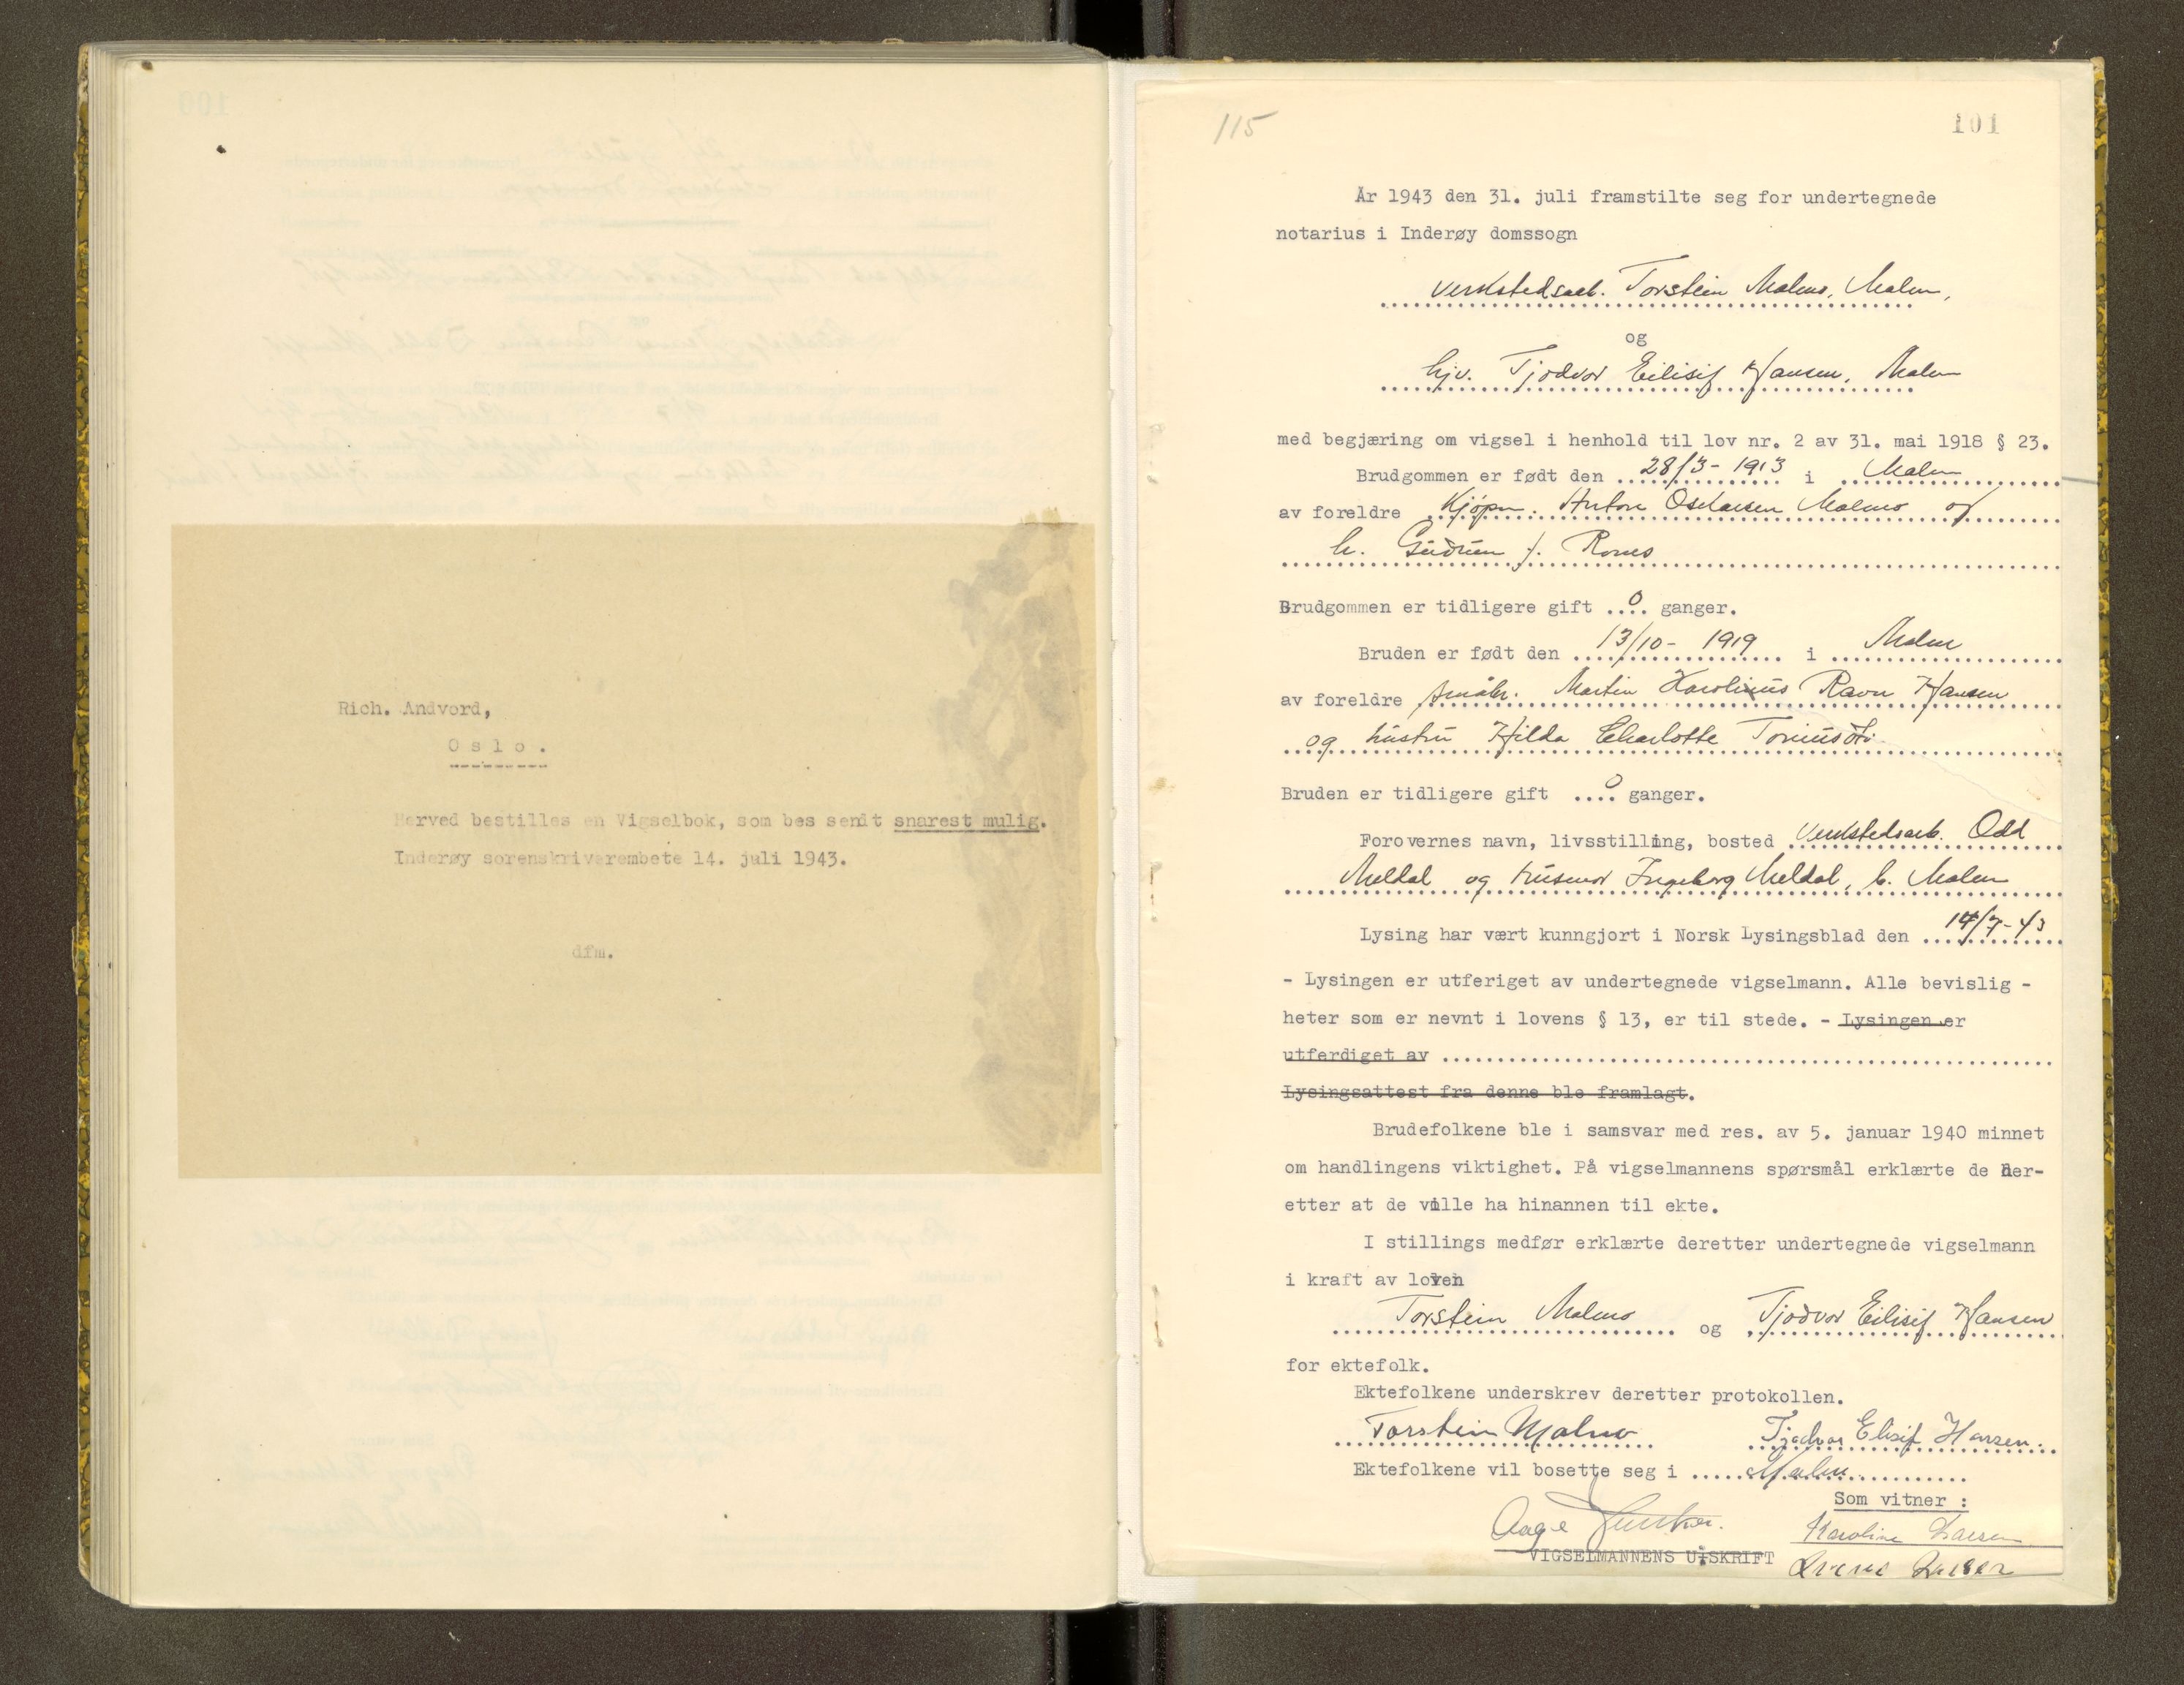 Rich. Andvord,
Oslo.
Herved bestilles en Vigselbok, som bes sendt snarest mulig.
Inderøy sorenskriverembete 14. juli 1943.
dfm.
115
101
År 1943 den 31. juli framstilte seg for undertegnede
notarius i Inderøy domssogn
verkstedsarb. Torstein Malmo, Malm,
og
hjv. Tjodvor Eilisif Hansen, Malm
med begjæring om vigsel i henhold til lov nr. 2 av 31. mai 1918 § 23.
Brudgommen er født den 28/3 - 1913 i Malm
av foreldre Kjøpm. Anton Oskarsen Malmo og
h. Gudrun f. Rones
Brudgommen er tidligere gift 0 ganger.
Bruden er født den 13/10 - 1919 i Malm
av foreldre småbr. Martin Karolinus Ravn Hansen
og hustru Hilda Charlotte
Bruden er tidligere gift 0 ganger.
Forovernes navn, livsstilling, bosted verkstedsarb. Odd
Meldal og husmor Ingeborg Meldal, b. Malm
Lysing har vært kunngjort i Norsk Lysingsblad den 14/7-43
- Lysingen er utferiget av undertegnede vigselmann. Alle bevislig -
heter som er nevnt i lovens § 13, er til stede. - Lysingen er
utferdiget av
Lysingsattest fra denne ble framlagt.
Brudefolkene ble i samsvar med res. av 5. januar 1940 minnet
om handlingens viktighet. På vigselmannens spørsmål erklærte de her-
etter at de ville ha hinannen til ekte.
I stillings medfør erklærte deretter undertegnede vigselmann
i kraft av loven
Torstein Malmo og Tjodvor Eilisif Hansen
for ektefolk.
Ektefolkene underskrev deretter protokollen.
Torstein Malmo Tjodvor Elisif Hansen.
Ektefolkene vil bosette seg i Malm
Som vitner :
Aage
Karoline Larsen
VIGSELMANNENS UTSKRIFT